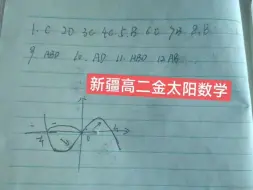 1. C 2. D 3. C 4. C 5. B 6. C 7. B 8. B
9. ABD 10. AD 11. ABD 12. AB
新疆高二金太阳数学